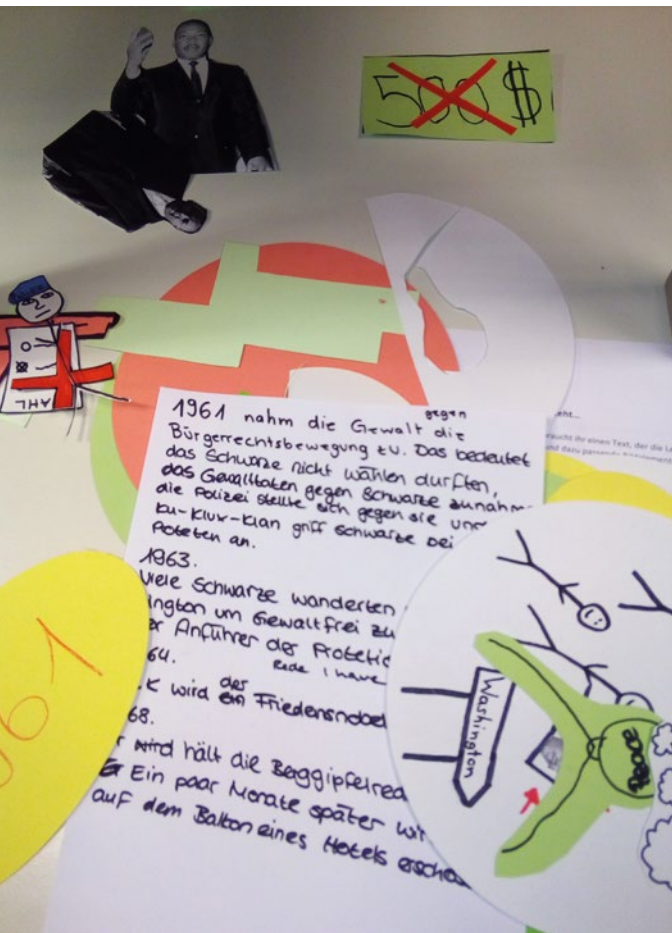 500 $
AHL
1961 nahm die Gewalt die gegen
Bürgerrechtsbewegung zu. Das bedeutet
das Schwarze nicht wählen durften,
das Gewalltaten gegen Schwarze zunahm
die Polizei stellte sich gegen sie und
Ku-Klux-Klan griff schwarze bei
Proteten an.
1963.
Viele Schwarze wanderten
ington um Gewaltfrei zu
er Anführer der Protetie
Rede I have
64.
K wird der Friedensnobel
68.
wird hält die Berggipfelred
Ein paar Monate später wir
auf dem Balkon eines Hotels erscho
961
Washington
200.000
eht...
raucht ihr einen Text, der die La
und dazu passende